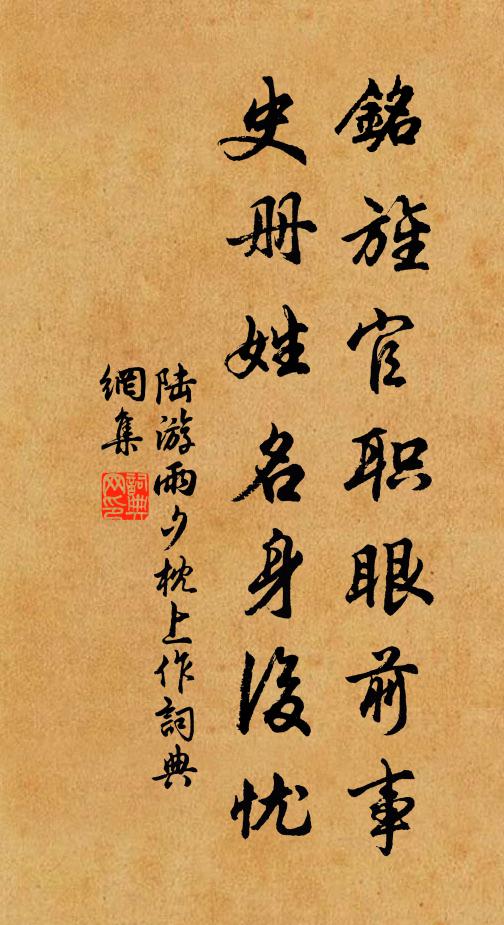 銘旌官职眼前事
史册姓名身後忧
陆游雨夕枕上作詞典
網集
詞典
网印